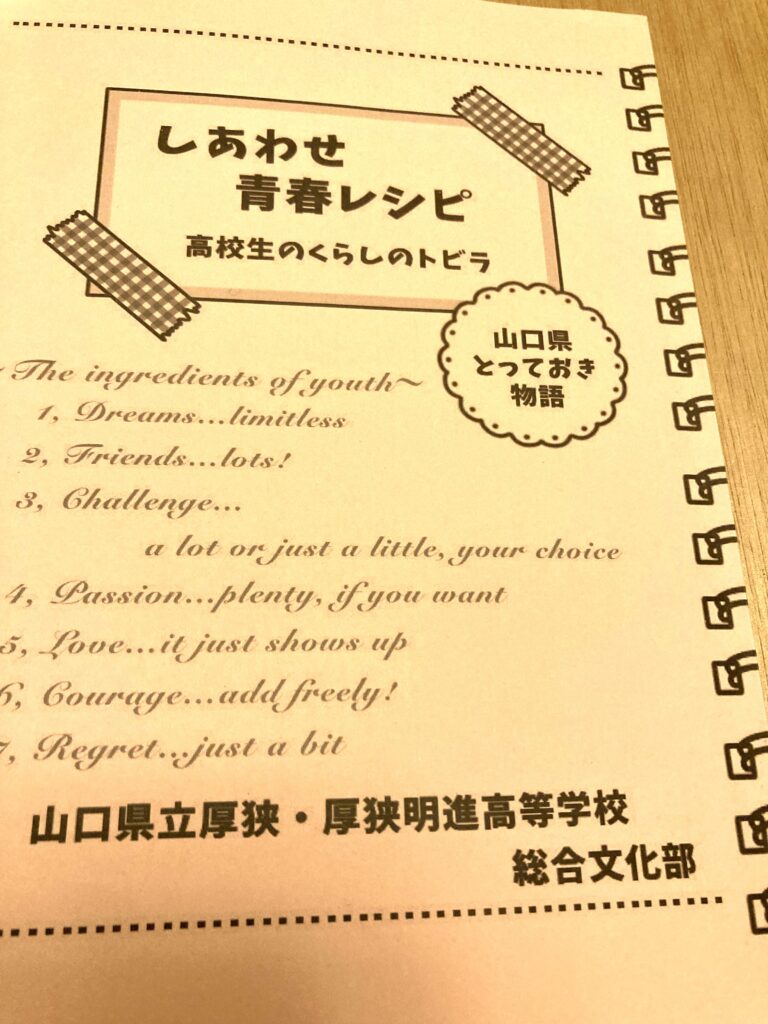 しあわせ
青春レシピ
高校生のくらしのトビラ
山口県
とっておき
物語
The ingredients of youth～
1, Dreams...limitless
2, Friends...lots!
3, Challenge...
a lot or just a little, your choice
4, Passion...plenty, if you want
5, Love...it just shows up
6, Courage...add freely!
7, Regret...just a bit
山口県立厚狭・厚狭明進高等学校
総合文化部